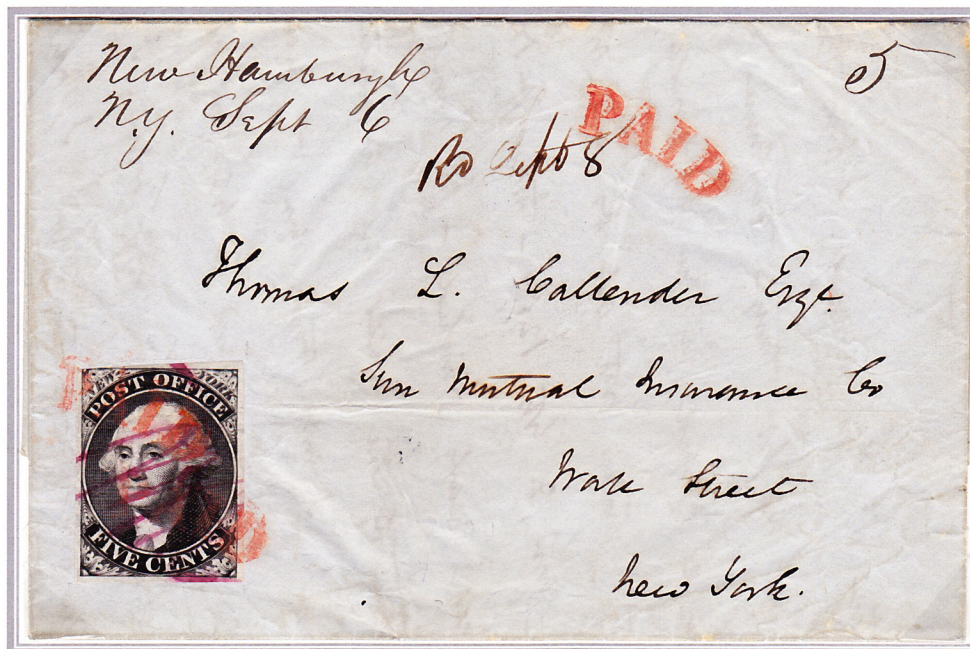 New Hamburgh
N.Y. Sept 6
5
PAID
Sept 8
Thomas L. Callender Esqr.
Sun Mutual Insurance Co
Wall Street
New York.
POST OFFICE
FIVE CENTS